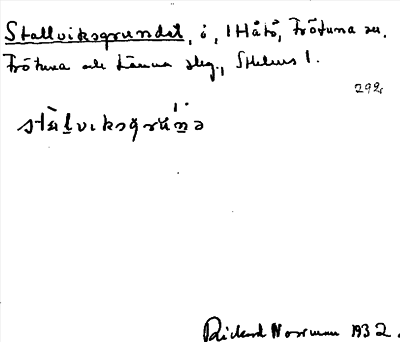 Stallviksgrundet, ö, 1 Håtö, Frötuna sn.
Frötuna och Länna slg., Sthlms l.
292
stàlviksgrúnə
Rickard Norrman 1932.